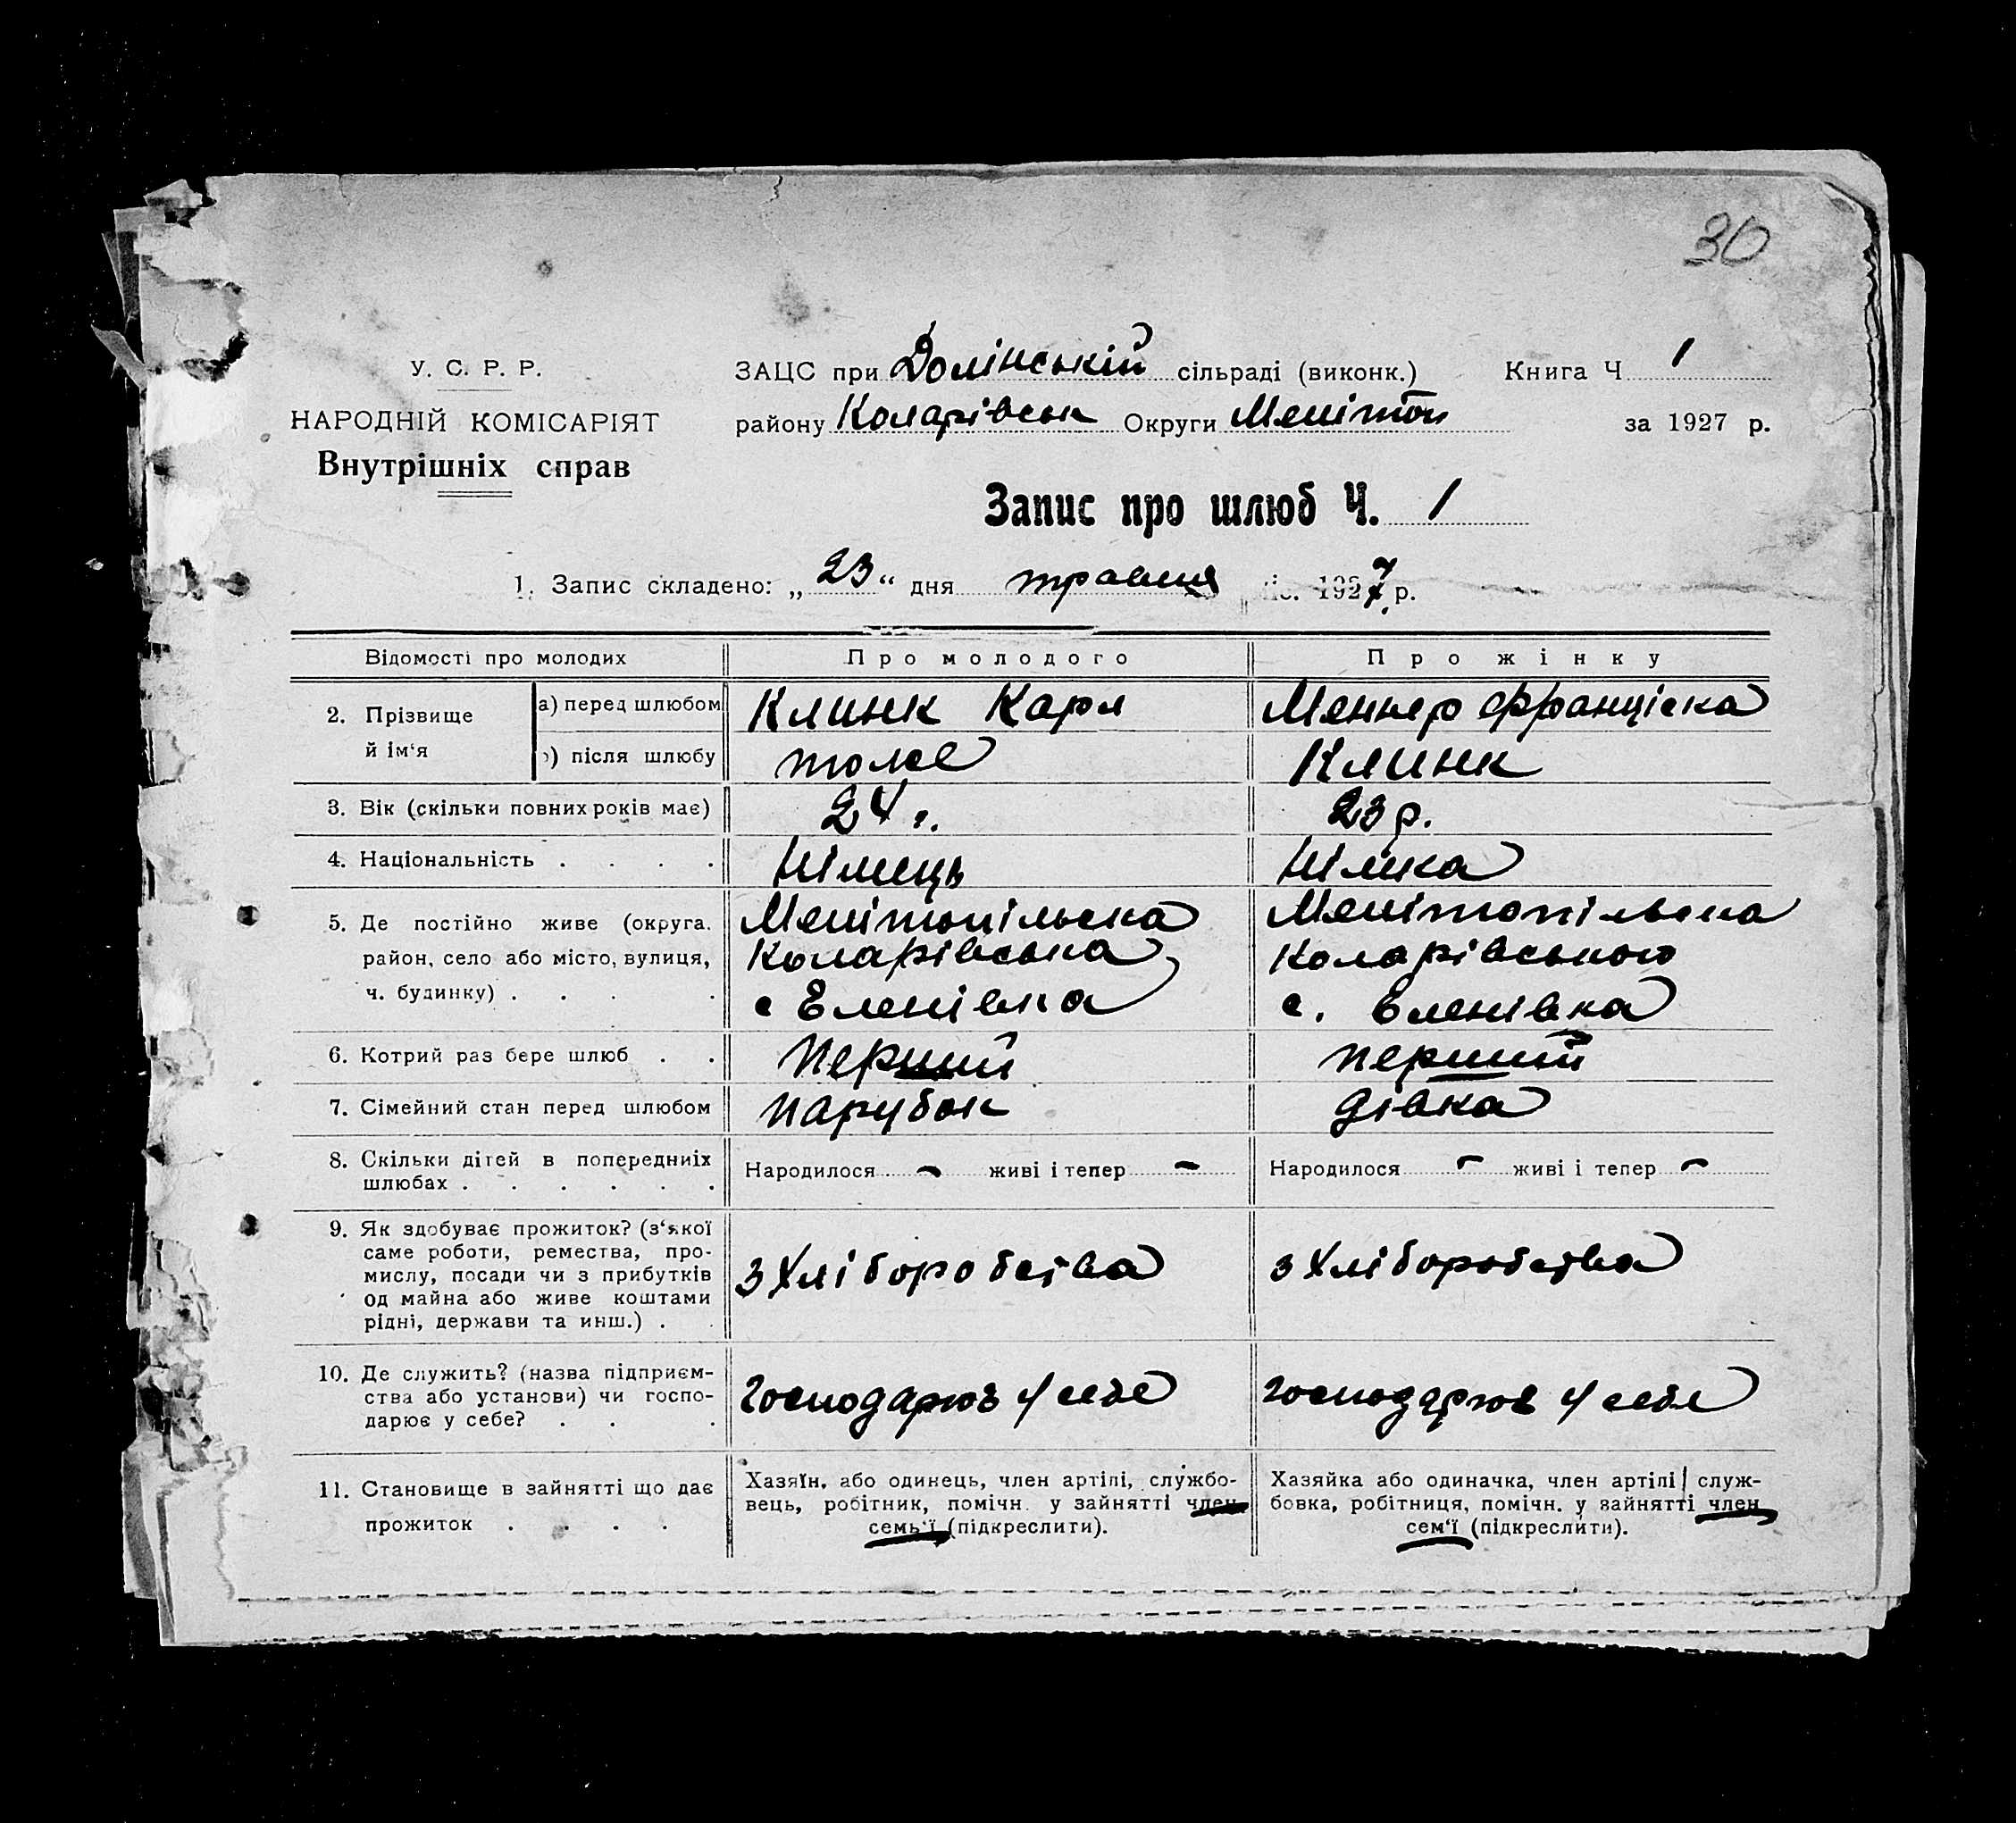 30
У. С. Р. Р.
НАРОДНІЙ КОМІСАРІЯТ
Внутрішніх справ
ЗАЦС при Долінській сільраді (виконк.) Книга Ч 1
району Коларівськ Округи Мелітоп за 1927 р.
Запис про шлюб Ч. 1
1. Запис складено: „23“ дня травня 1927 р.
Відомості про молодих Про молодого Про жінку
2. Прізвище й ім‘я а) перед шлюбом Клинк Карл Меннер Франціска
) після шлюбу тоже Клинк
3. Вік (скільки повних років має) 24 р. 23 р.
4. Національність . . . . Німець Німка
5. Де постійно живе (округа. Мелітопільска Мелітопільска
район, село або місто, вулиця, Коларівська Коларівського
ч. будинку) . . . . с Еленівка с. Еленівка
6. Котрий раз бере шлюб . . Перший перший
7. Сімейний стан перед шлюбом парубок дівка
8. Скільки дітей в попередниіх Народилося - живі і тепер - Народилося - живі і тепер -
шлюбах . . . . . .
9. Як здобуває прожиток? (з‘якої
саме роботи, ремества, про-
мислу, посади чи з прибутків з Хліборобства з Хліборобства
од майна або живе коштами
рідні, держави та инш.) . .
10. Де служить? (назва підприєм-
ства або установи) чи госпо- господарює у себе господарює у себе
дарює у себе? . . .
11. Становище в зайнятті що дає Хазяїн, або одинець, член артілі, службо- Хазяйка або одиначка, член артілі служ-
прожиток . . . . вець, робітник, помічн. у зайнятті член бовка, робітниця, помічн. у зайнятті член
семь‘ї (підкреслити). сем‘ї (підкреслити).